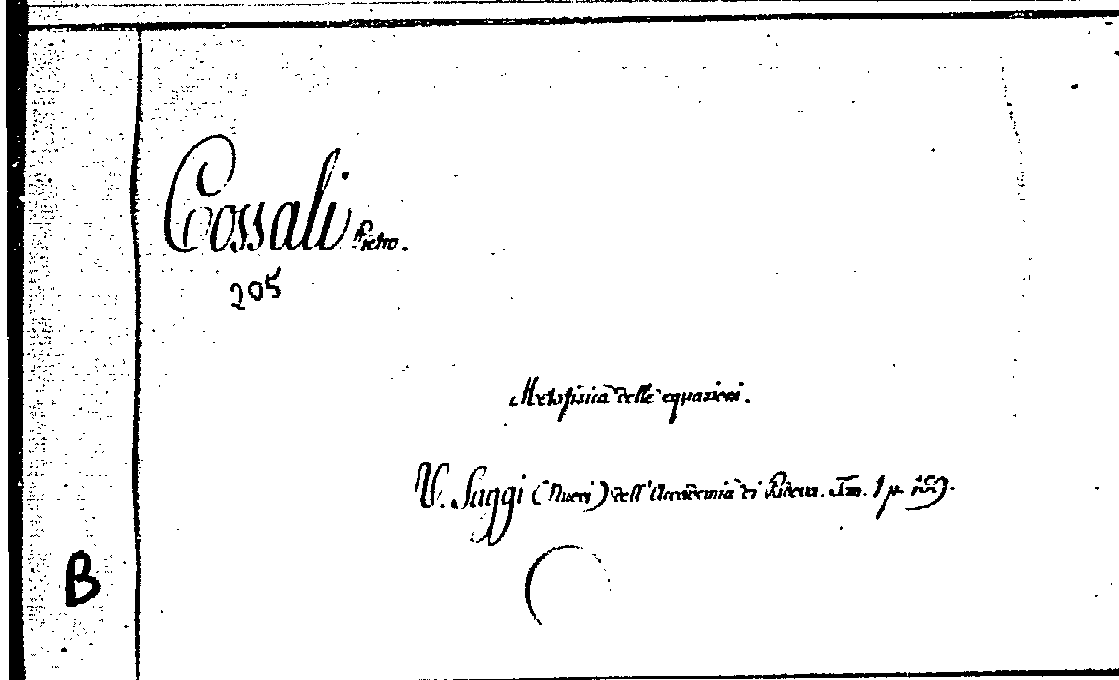 Cossali Pietro.
205
Metafisica delle equazioni.
V. Saggi (Nuovi) dell'Accademia di Padova. Tom. 1 p.
B